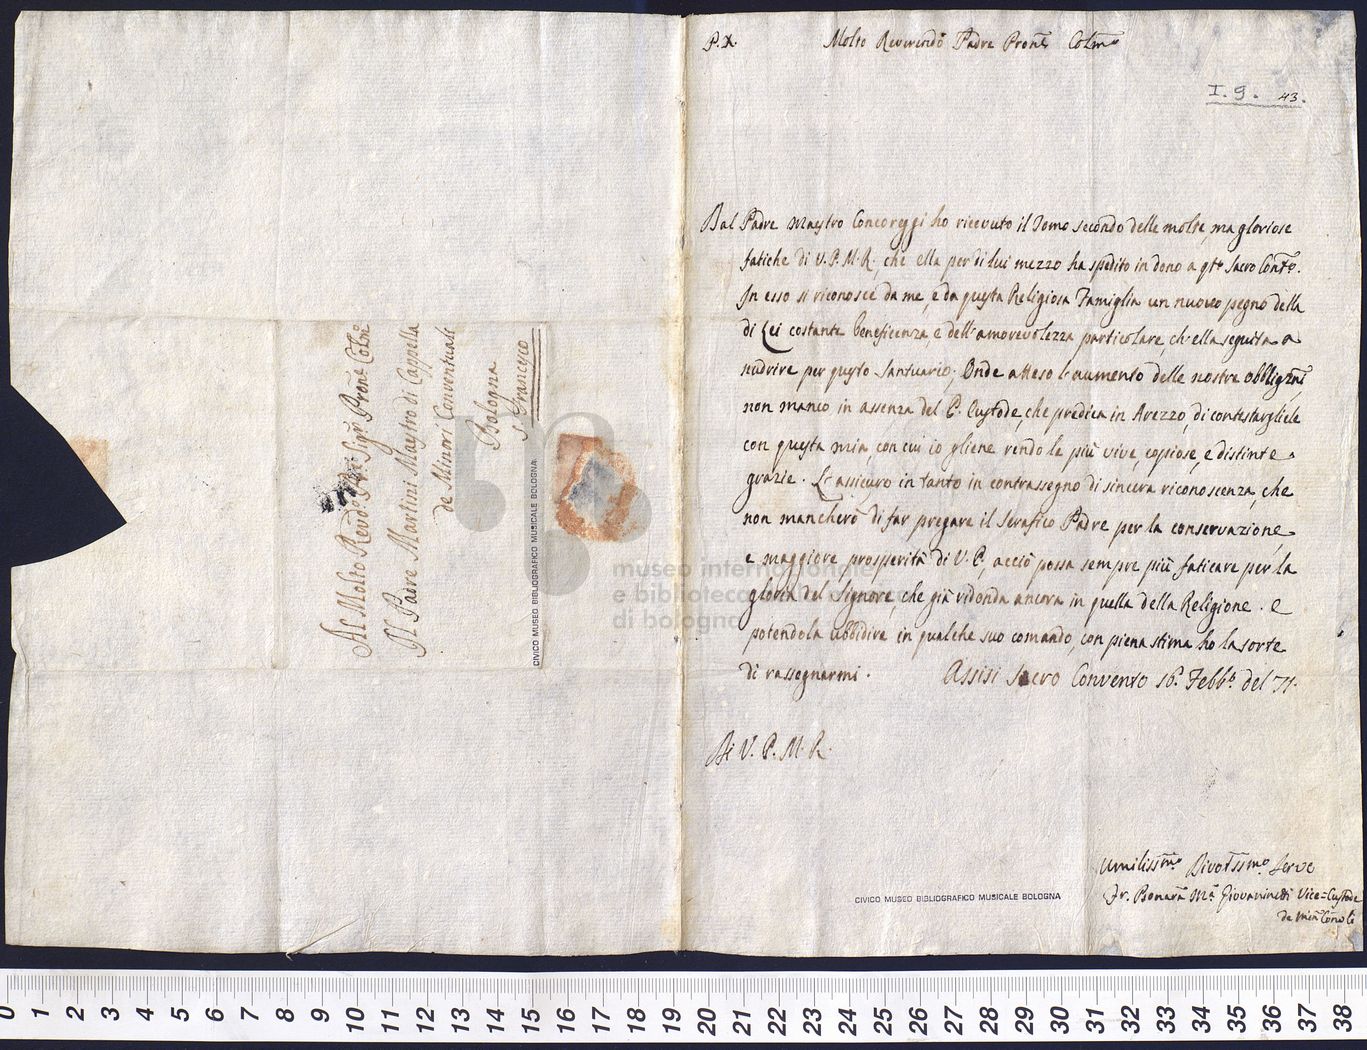 Al Molto Revdo. Pre. Sigr. Prone. Colmo.
Il Padre Martini Maystro di Cappella
de Minori Conventuali
Bologna
S. Francesco
CIVICO MUSEO BIBLIOGRAFICO MUSICALE BOLOGNA
P. X.
Molto Reverendo Padre Prone Colmo
I. 9. 43.
Dal Padre Maystro Concoreggi ho ricevuto il Tomo secondo delle molte, ma gloriose
fatiche di V. P. M. R., che ella per di lui mezzo ha spedito in dono a qto. Sacro Conto.
In esso si riconosce da me, e da questa Religiosa Famiglia un nuovo pegno della
di Lei costante beneficenza e dell'amorevolezza particolare, ch'ella seguita a
nudrire per questo Santuario; Onde atteso l'aumento delle nostre obbligzni
non manco in assenza del P. Custode, che predica in Arezzo, di contestargliele
con questa mia, con cui io gliene rendo le più vive, copiose, e distinte
grazie. L'assicuro in tanto in contrassegno di sincera riconoscenza, che
non mancherò di far pregare il Serafico Padre per la conservazione,
e maggiore prosperità di V. P., acciò possa sempre più faticare per la
gloria del Signore, che già ridonda ancora in quella della Religione. e
potendola ubbidire in qualche suo comando, con piena stima ho la sorte
di rassegnarmi.
Assisi Sacro Convento 16. Febbo. del 71.
Di V. P. M. R.
Umilissmo. Divotssmo. Servo
Fr. Bonava Ma. Giovaninetti Vice-Custode
de Min Convli
CIVICO MUSEO BIBLIOGRAFICO MUSICALE BOLOGNA
museo internazionale
e biblioteca
di bologna
0 1 2 3 4 5 6 7 8 9 10 11 12 13 14 15 16 17 18 19 20 21 22 23 24 25 26 27 28 29 30 31 32 33 34 35 36 37 38